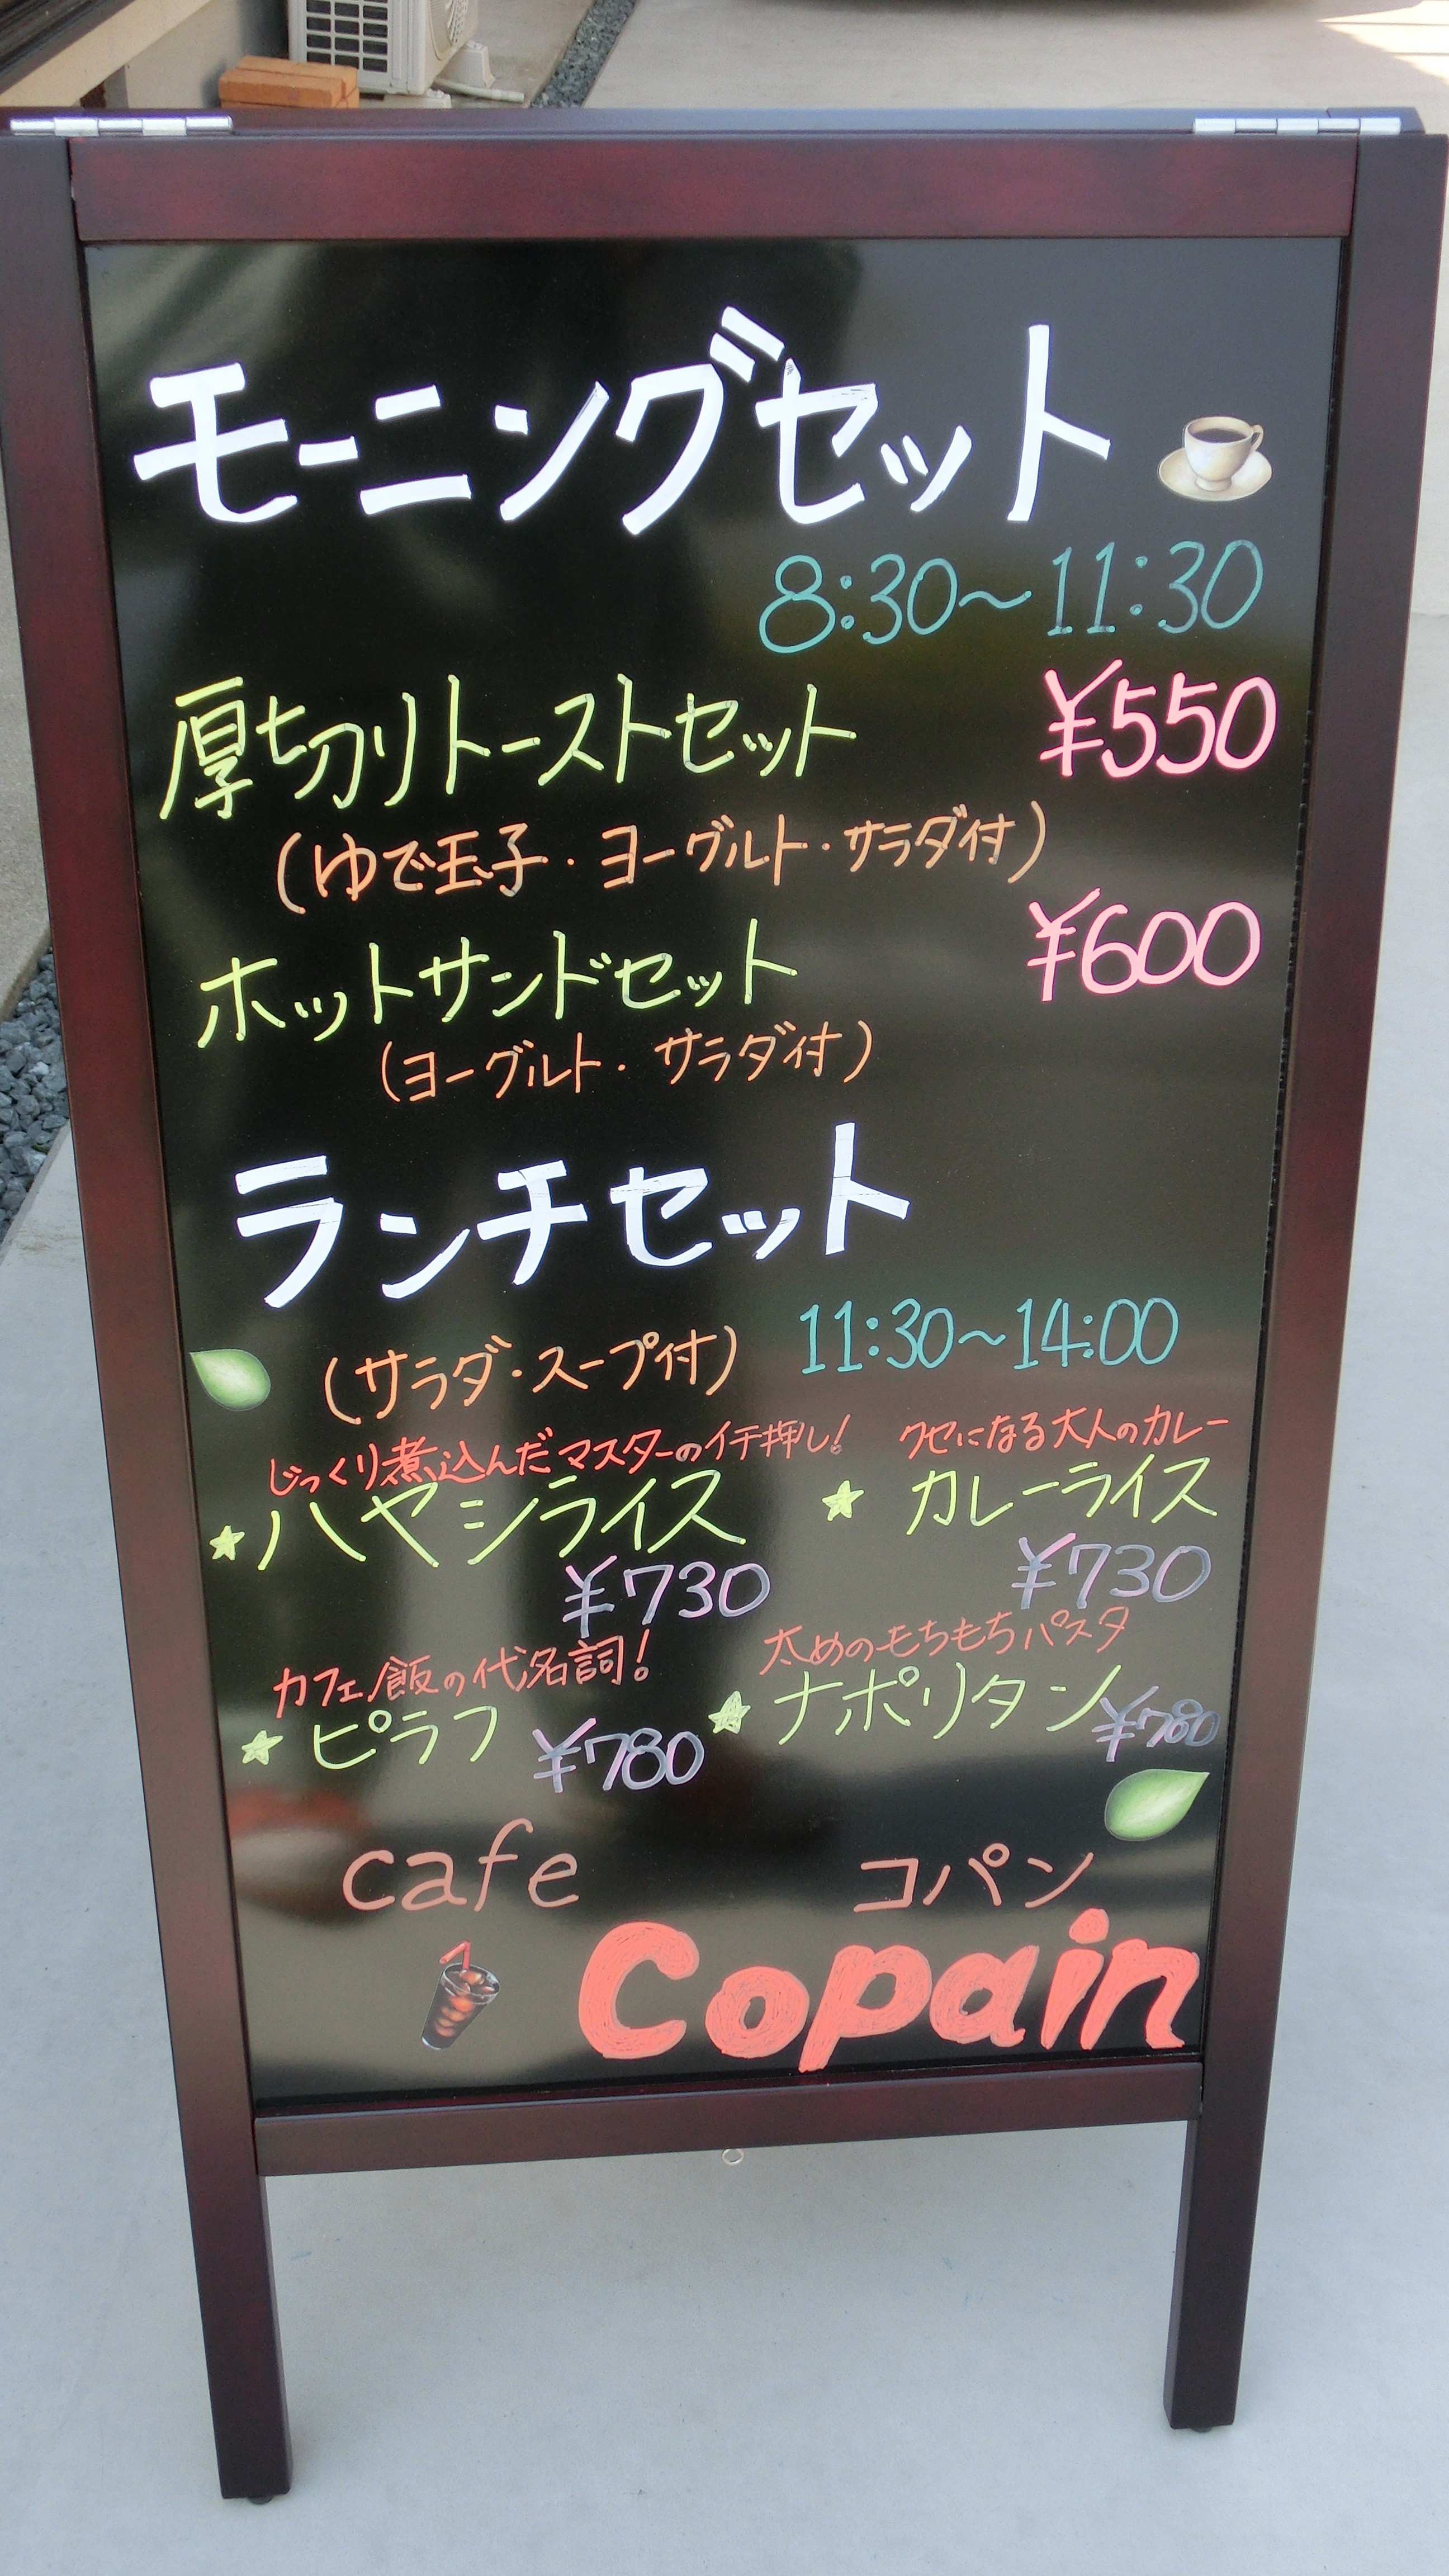 モーニングセット
8:30〜11:30
厚切りトーストセット ¥550
(ゆで玉子・ヨーグルト・サラダ付)
ホットサンドセット ¥600
(ヨーグルト・サラダ付)
ランチセット
(サラダ・スープ付) 11:30〜14:00
じっくり煮込んだマスターのイチ押し! クセになる大人のカレー
★ハヤシライス ★カレーライス
¥730 ¥730
カフェ飯の代名詞! 太めのもちもちパスタ
★ピラフ ¥780 ★ナポリタン ¥780
cafe コパン
Copain